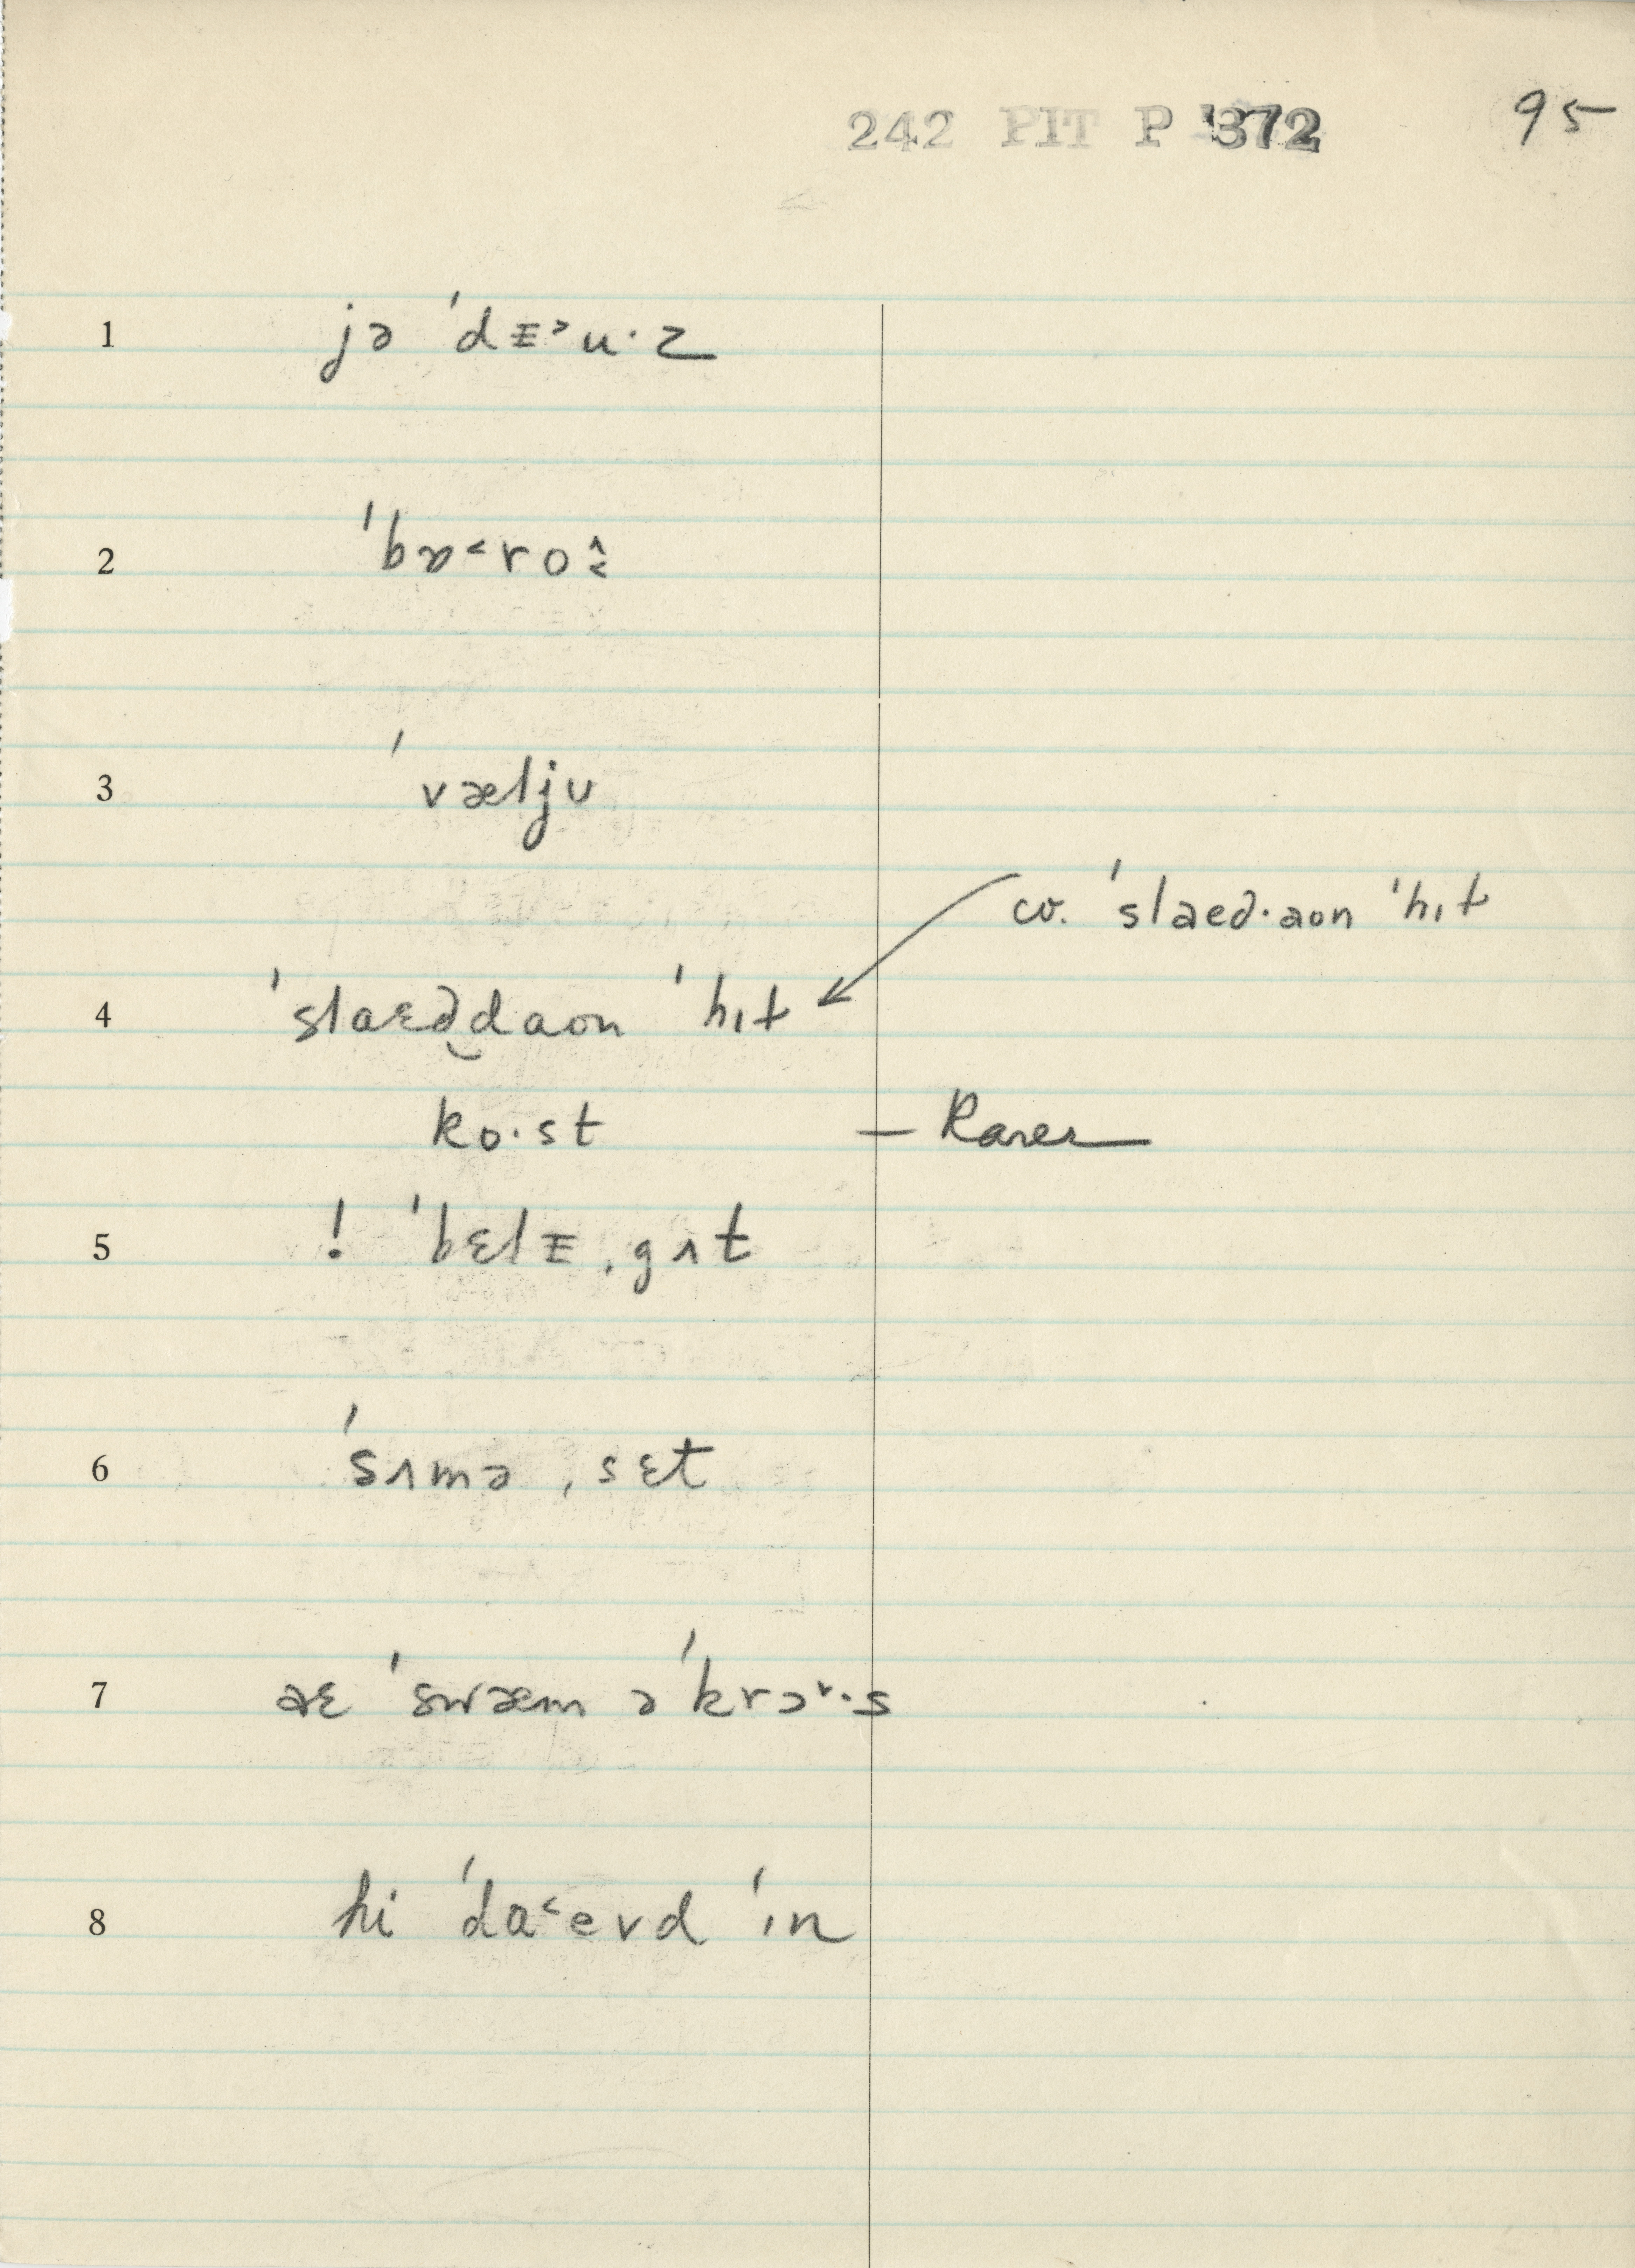 242 PIT P 372 95
1 jə ˈdᵻ˃u·z
2 ˈbɒ˂ro
3 ˈvæljʊ
cv. ˈslaed·aon ˈhɪt
4 ˈslaɛd̯daon ˈhɪt
ko·st — Rarer
5 ! ˈbɛlᵻˌgʌt
6 ˈsʌməˌsɛt
7 aɛ ˈswæm əˈkrɔ˅·s
8 hi ˈda˂evd ˈɪn